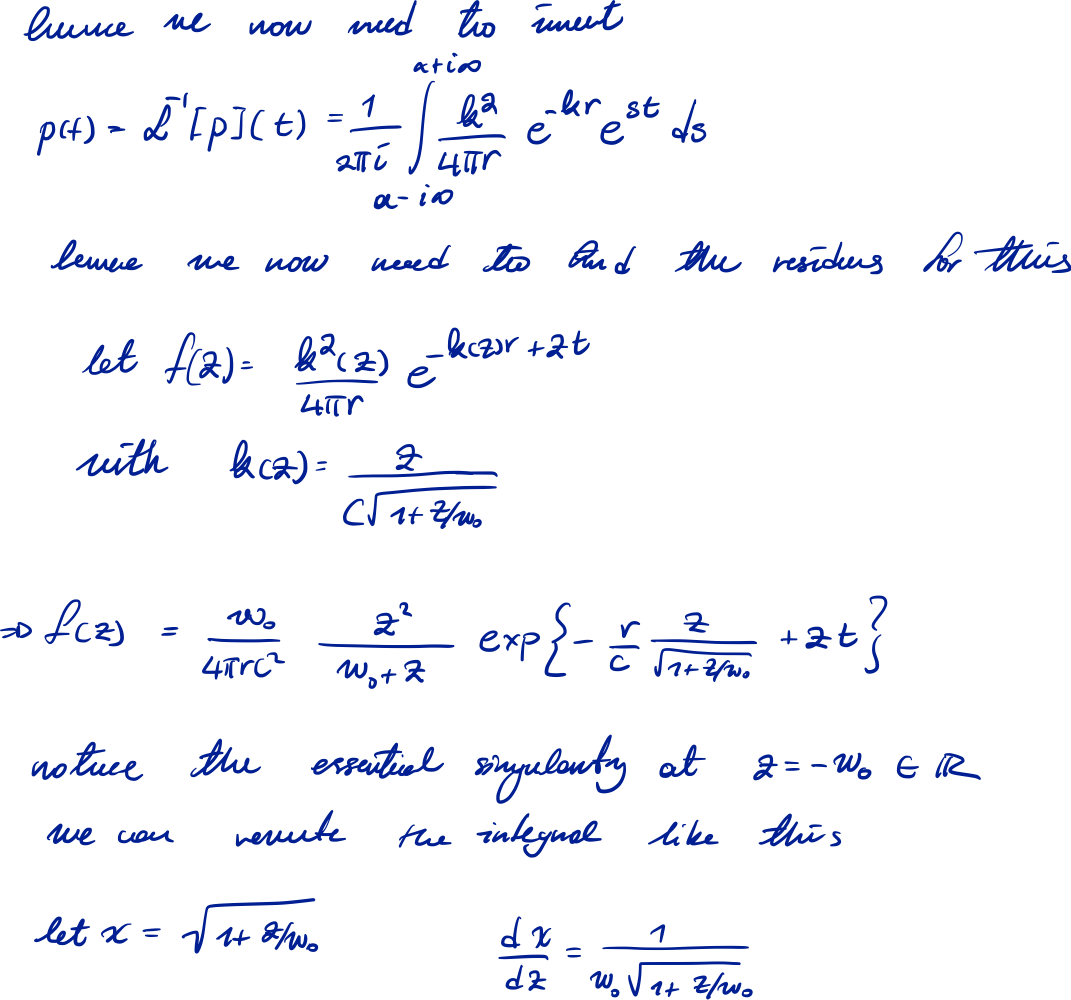 hence we now need to invert
p(t) = ℒ⁻¹[p](t) = \frac{1}{2πi} \int_{α-i∞}^{α+i∞} \frac{k²}{4πr} e^{-kr} e^{st} ds
hence we now need to find the residues for this
let f(z) = \frac{k²(z)}{4πr} e^{-k(z)r + zt}
with k(z) = \frac{z}{c\sqrt{1+z/w₀}}
⇒ f(z) = \frac{w₀}{4πrc²} \frac{z²}{w₀+z} exp{ -\frac{r}{c} \frac{z}{\sqrt{1+z/w₀}} + zt }
notice the essential singularity at z = -w₀ ∈ ℝ
we can rewrite the integral like this
let x = \sqrt{1+z/w₀} \frac{dx}{dz} = \frac{1}{w₀\sqrt{1+z/w₀}}